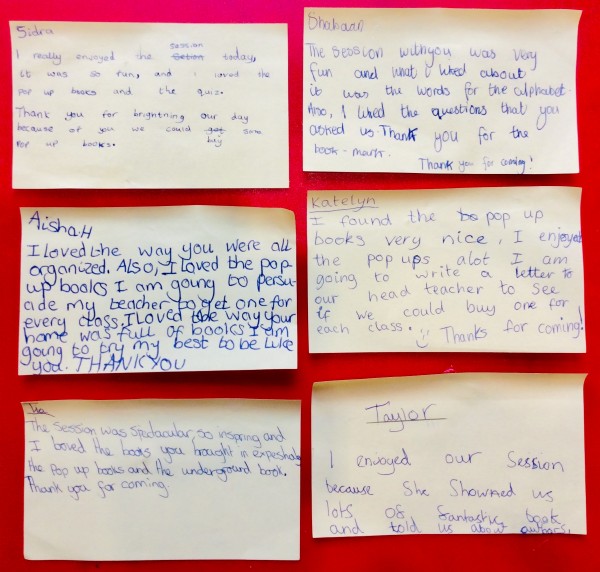 Sidra
I really enjoyed the session today,
it was so fun, and i loved the
pop up books and the quiz.
Thank you for brightning our day
because of you we could buy some
pop up books.
Shabaan
The session with you was very
fun and what i liked about
it was the words for the alphabet.
Also, I liked the questions that you
asked us. Thank you for the
book-mark.
Thank you for coming!
Aisha.H
I loved the way you were all
organized. Also, I loved the pop-
up books I am going to persu-
ade my teacher to get one for
every class. I loved the way your
home was full of books I am
going to try my best to be like
you. THANK YOU
Katelyn
I found the pop up
books very nice, I enjoyed
the pop ups alot I am
going to write a letter to
our head teacher to see
if we could buy one for
each class. Thanks for coming!
The session was spectacular, so inspring and
I loved the books you brought in expeshaly
the pop up books and the underground book.
Thank you for coming.
Taylor
I enyoyed our Session
because She Showned us
lots of fantastic book
and told us about authors.